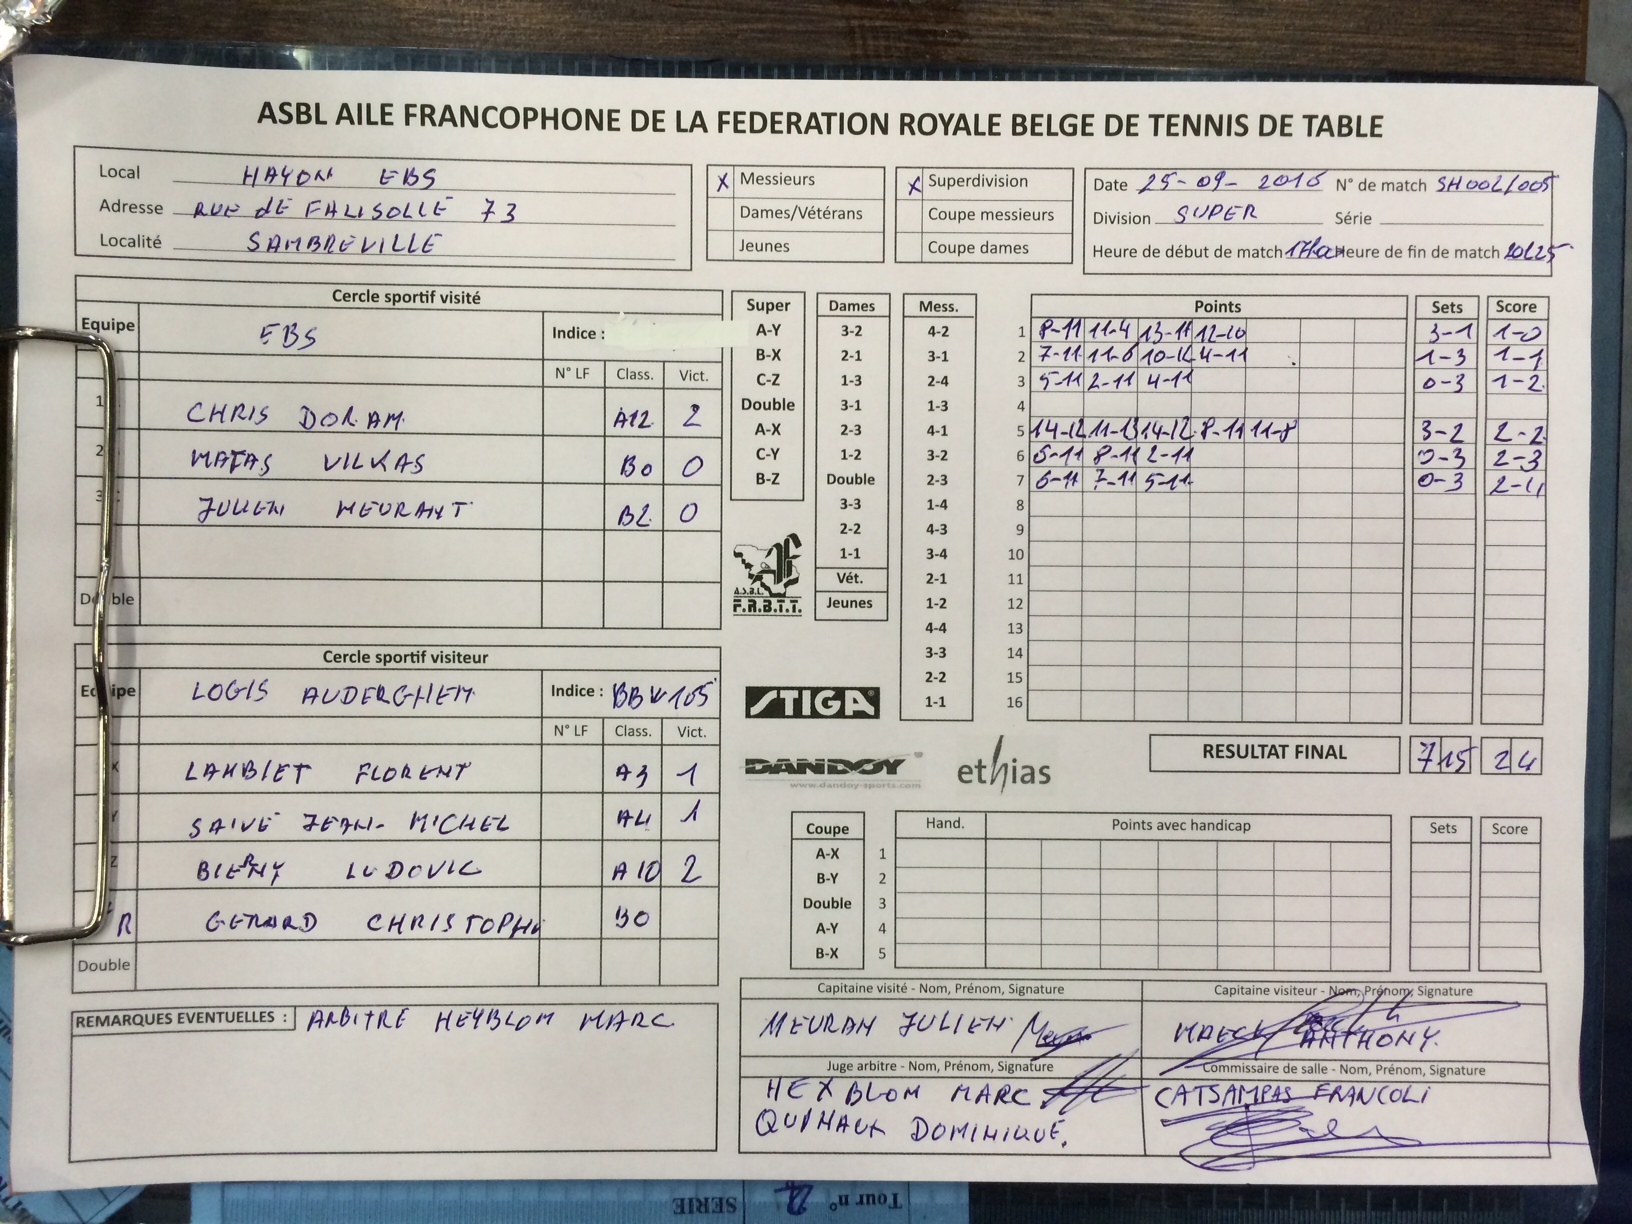 ASBL AILE FRANCOPHONE DE LA FEDERATION ROYALE BELGE DE TENNIS DE TABLE
Local HAYON EBS
Adresse RUE de FALISOLLE 73
Localité SAMBREVILLE
X Messieurs
Dames/Vétérans
Jeunes
X Superdivision
Coupe messieurs
Coupe dames
Date 25-09-2016 N° de match SH002/005
Division SUPER Série
Heure de début de match Heure de fin de match 20h25
Cercle sportif visité
Equipe EBS Indice :
N° LF Class. Vict.
1 CHRIS DORAM A12 2
2 MATAS VILKAS B0 0
3 JULIEN MEURANT B2 0
Double
Cercle sportif visiteur
Equipe LOGIS AUDERGHEM Indice : BBW105
N° LF Class. Vict.
LAMBIET FLORENT A3 1
Y SAIVE JEAN-MICHEL A4 1
Z BIERNY LUDOVIC A10 2
R GERARD CHRISTOPHE B0
Double
REMARQUES EVENTUELLES : ARBITRE HEYBLOM MARC
Super
A-Y
B-X
C-Z
Double
A-X
C-Y
B-Z
A.S.B.L.
F.R.B.T.T.
Dames
3-2
2-1
1-3
3-1
2-3
1-2
Double
3-3
2-2
1-1
Vét.
Jeunes
Mess.
4-2
3-1
2-4
1-3
4-1
3-2
2-3
1-4
4-3
3-4
2-1
1-2
4-4
3-3
2-2
1-1
Points Sets Score
1 8-11 11-4 13-11 12-10 3-1 1-0
2 7-11 11-6 10-12 4-11 1-3 1-1
3 5-11 2-11 4-11 0-3 1-2
4
5 14-12 11-13 14-12 8-11 11-8 3-2 2-2
6 5-11 8-11 2-11 0-3 2-3
7 6-11 7-11 5-11 0-3 2-4
8
9
10
11
12
13
14
15
16
STIGA
DANDOY
www.dandoy-sports.com
ethias
RESULTAT FINAL 7 15 2 4
Coupe Hand. Points avec handicap Sets Score
A-X 1
B-Y 2
Double 3
A-Y 4
B-X 5
Capitaine visité - Nom, Prénom, Signature
MEURAN JULIEN
Capitaine visiteur - Nom, Prénom, Signature
ANTHONY.
Juge arbitre - Nom, Prénom, Signature
HEXBLOM MARC
QUINAUX DOMINIQUE.
Commissaire de salle - Nom, Prénom, Signature
CATSAMPAS FRANCOLI
Tour n° 2
SERIE